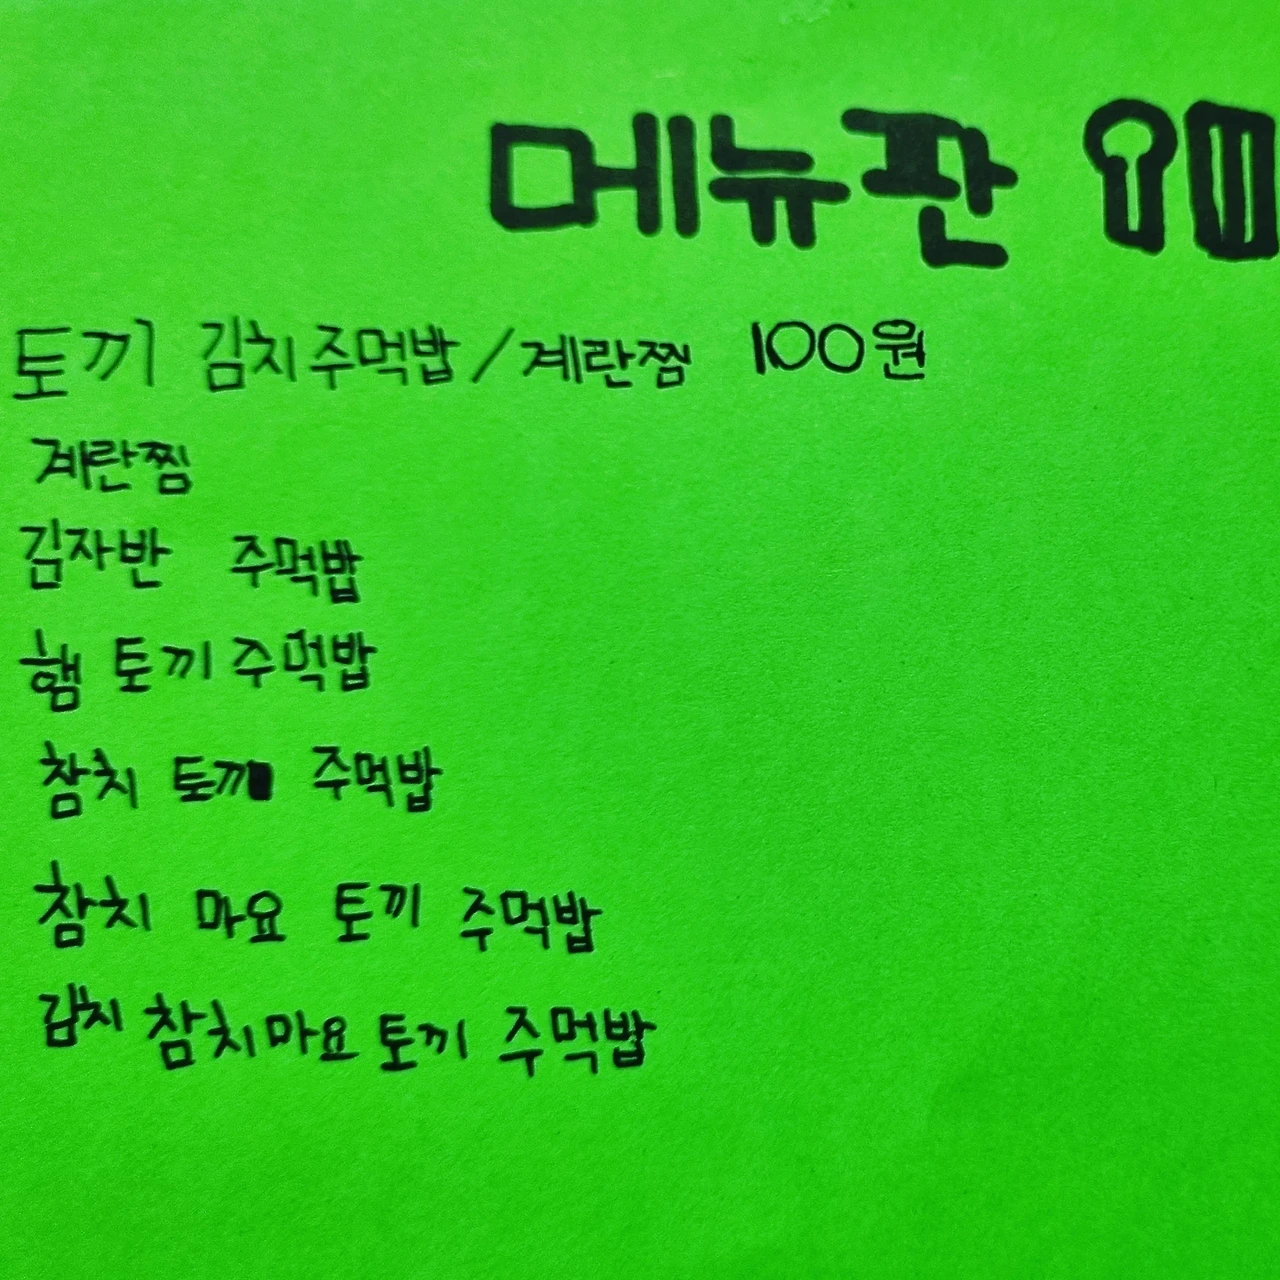 메뉴판
토끼 김치주먹밥/계란찜 100원
계란찜
김자반 주먹밥
햄 토끼주먹밥
참치 토끼 주먹밥
참치 마요 토끼 주먹밥
김치 참치마요 토끼 주먹밥